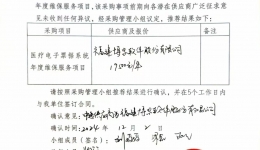 年度维保服务项目，该采购事项前期向各潜在供应商广泛征求意
见未收到任何异议，经采购管理小组议定，推荐结果如下：
采购项目
供应商及报价
医疗电子票据系统
年度维保服务项目
福建博思软件股份有限公司
17500元/年
请按照采购管理小组推荐结果进行确认，并在5个工作日内
与我单位签订合同。
确认意见：
确认时间：2024 年 12 月 2 日
小组成员（签名）：